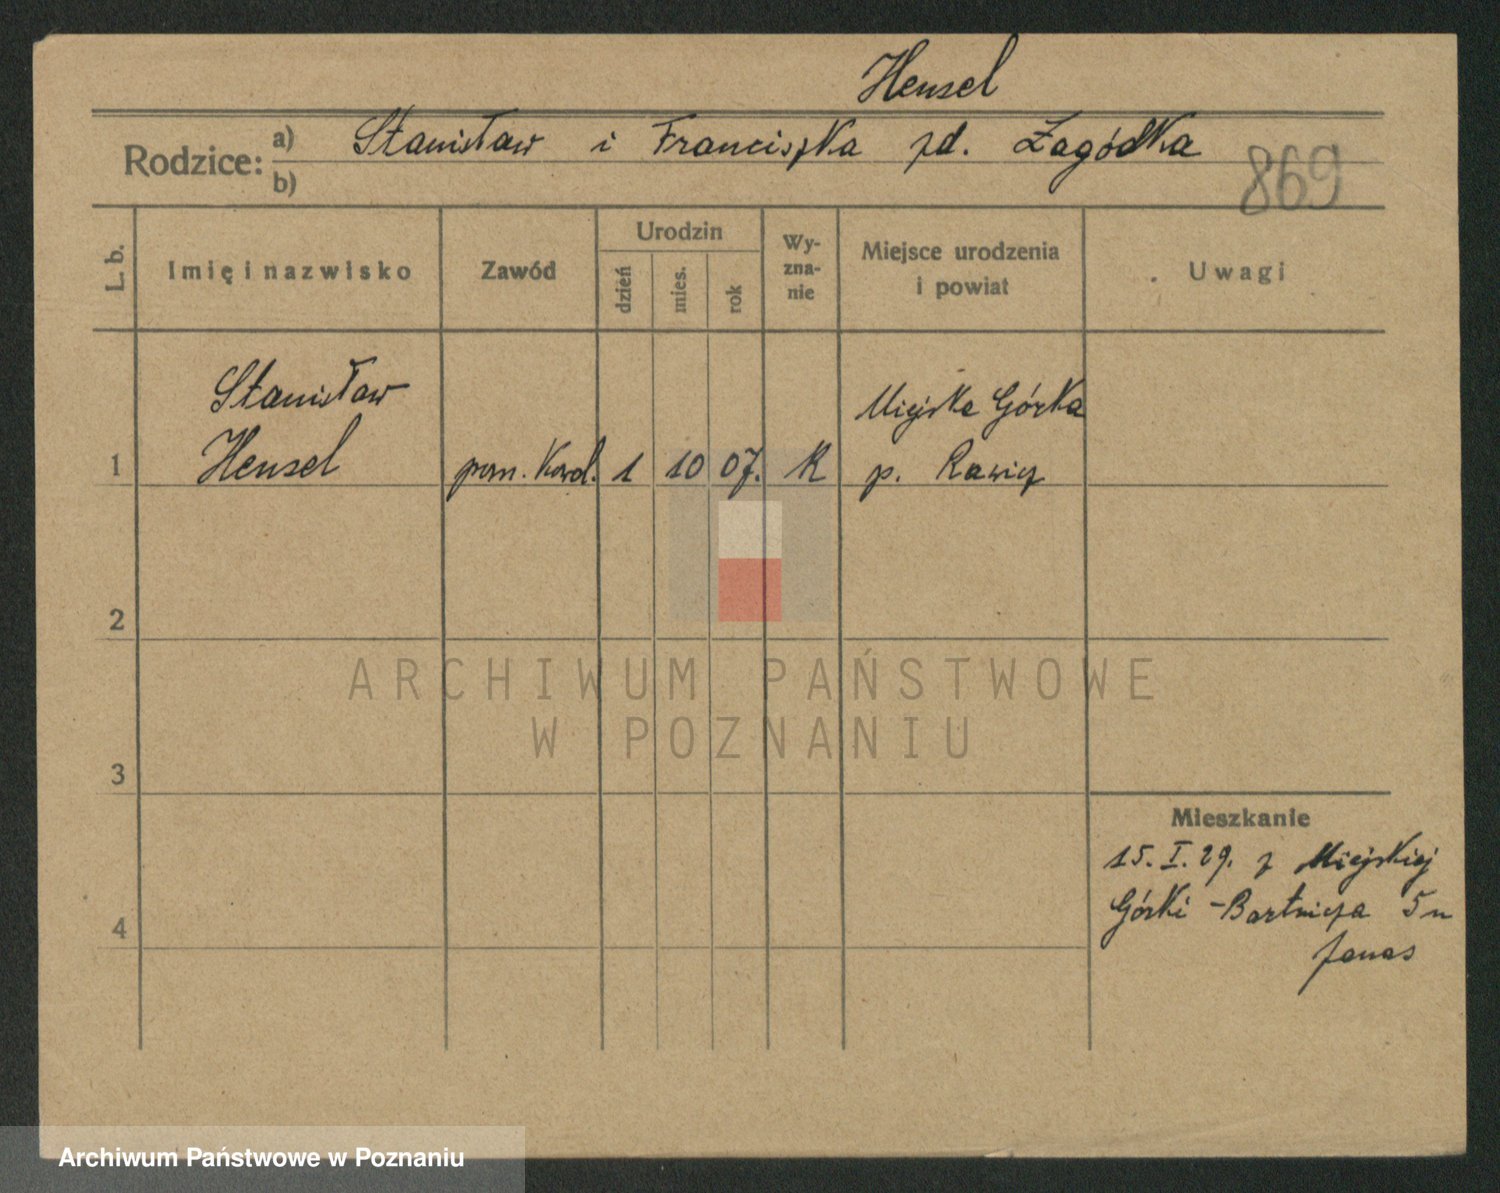 Hensel
Rodzice: a) Stanisław i Franciszka zd. Zagódka
b)
869
L. b.
Imię i nazwisko
Zawód
Urodzin
dzień
mies.
rok
Wy-
zna-
nie
Miejsce urodzenia
i powiat
Uwagi
Stanisław
Miejska Górka
1 Hensel pom. Kowal. 1 10 07. K p. Rawicz
2
ARCHIWUM PAŃSTWOWE
W POZNANIU
3
Mieszkanie
15. I. 29. z Miejskiej
4 Górki - Bartnicza 5
Archiwum Państwowe w Poznaniu